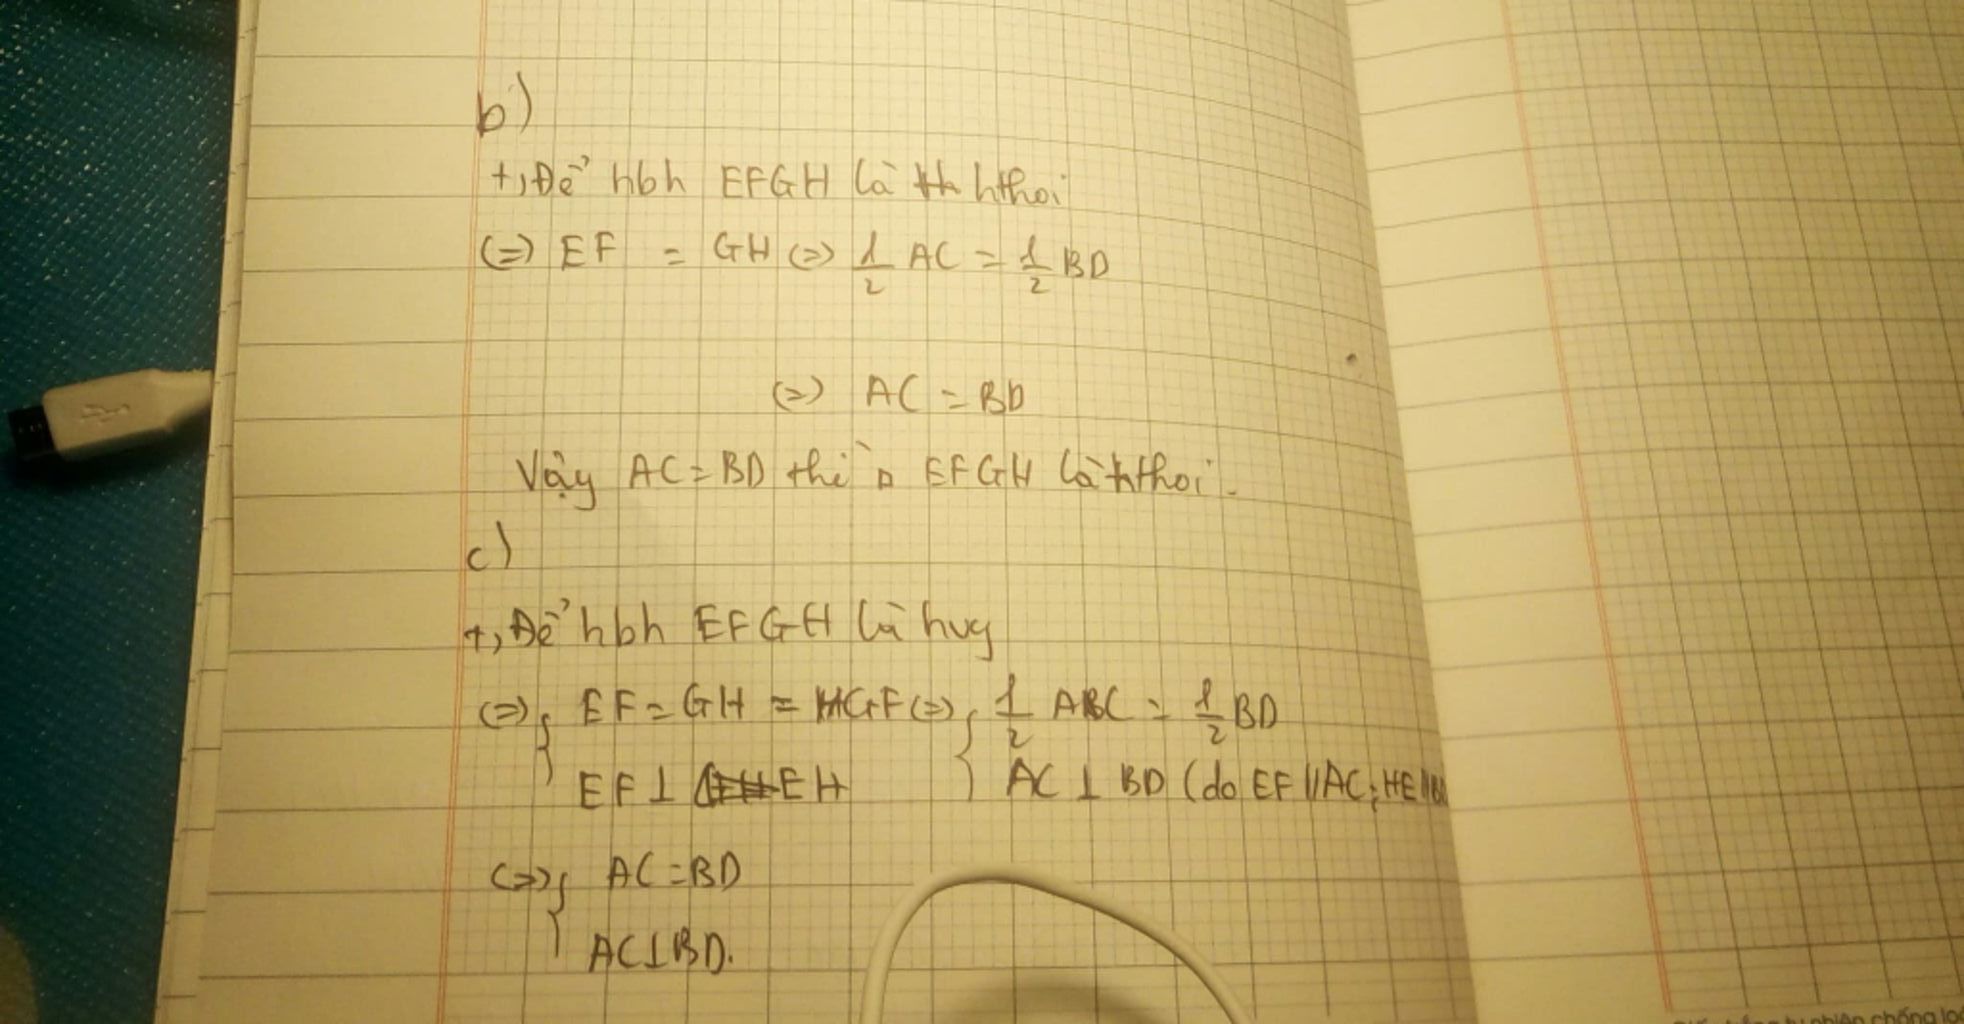 b)
+, Để hbh EFGH là hthoi
(=) EF = GH (=) 1/2 AC = 1/2 BD
(=) AC = BD
Vậy AC = BD thì □ EFGH là hthoi.
c)
+, Để hbh EFGH là hvg
(=) { EF = GH = GF (=) { 1/2 AC = 1/2 BD
EF ⊥ EH AC ⊥ BD (do EF // AC; HE // BD
(=) { AC = BD
AC ⊥ BD.
chống